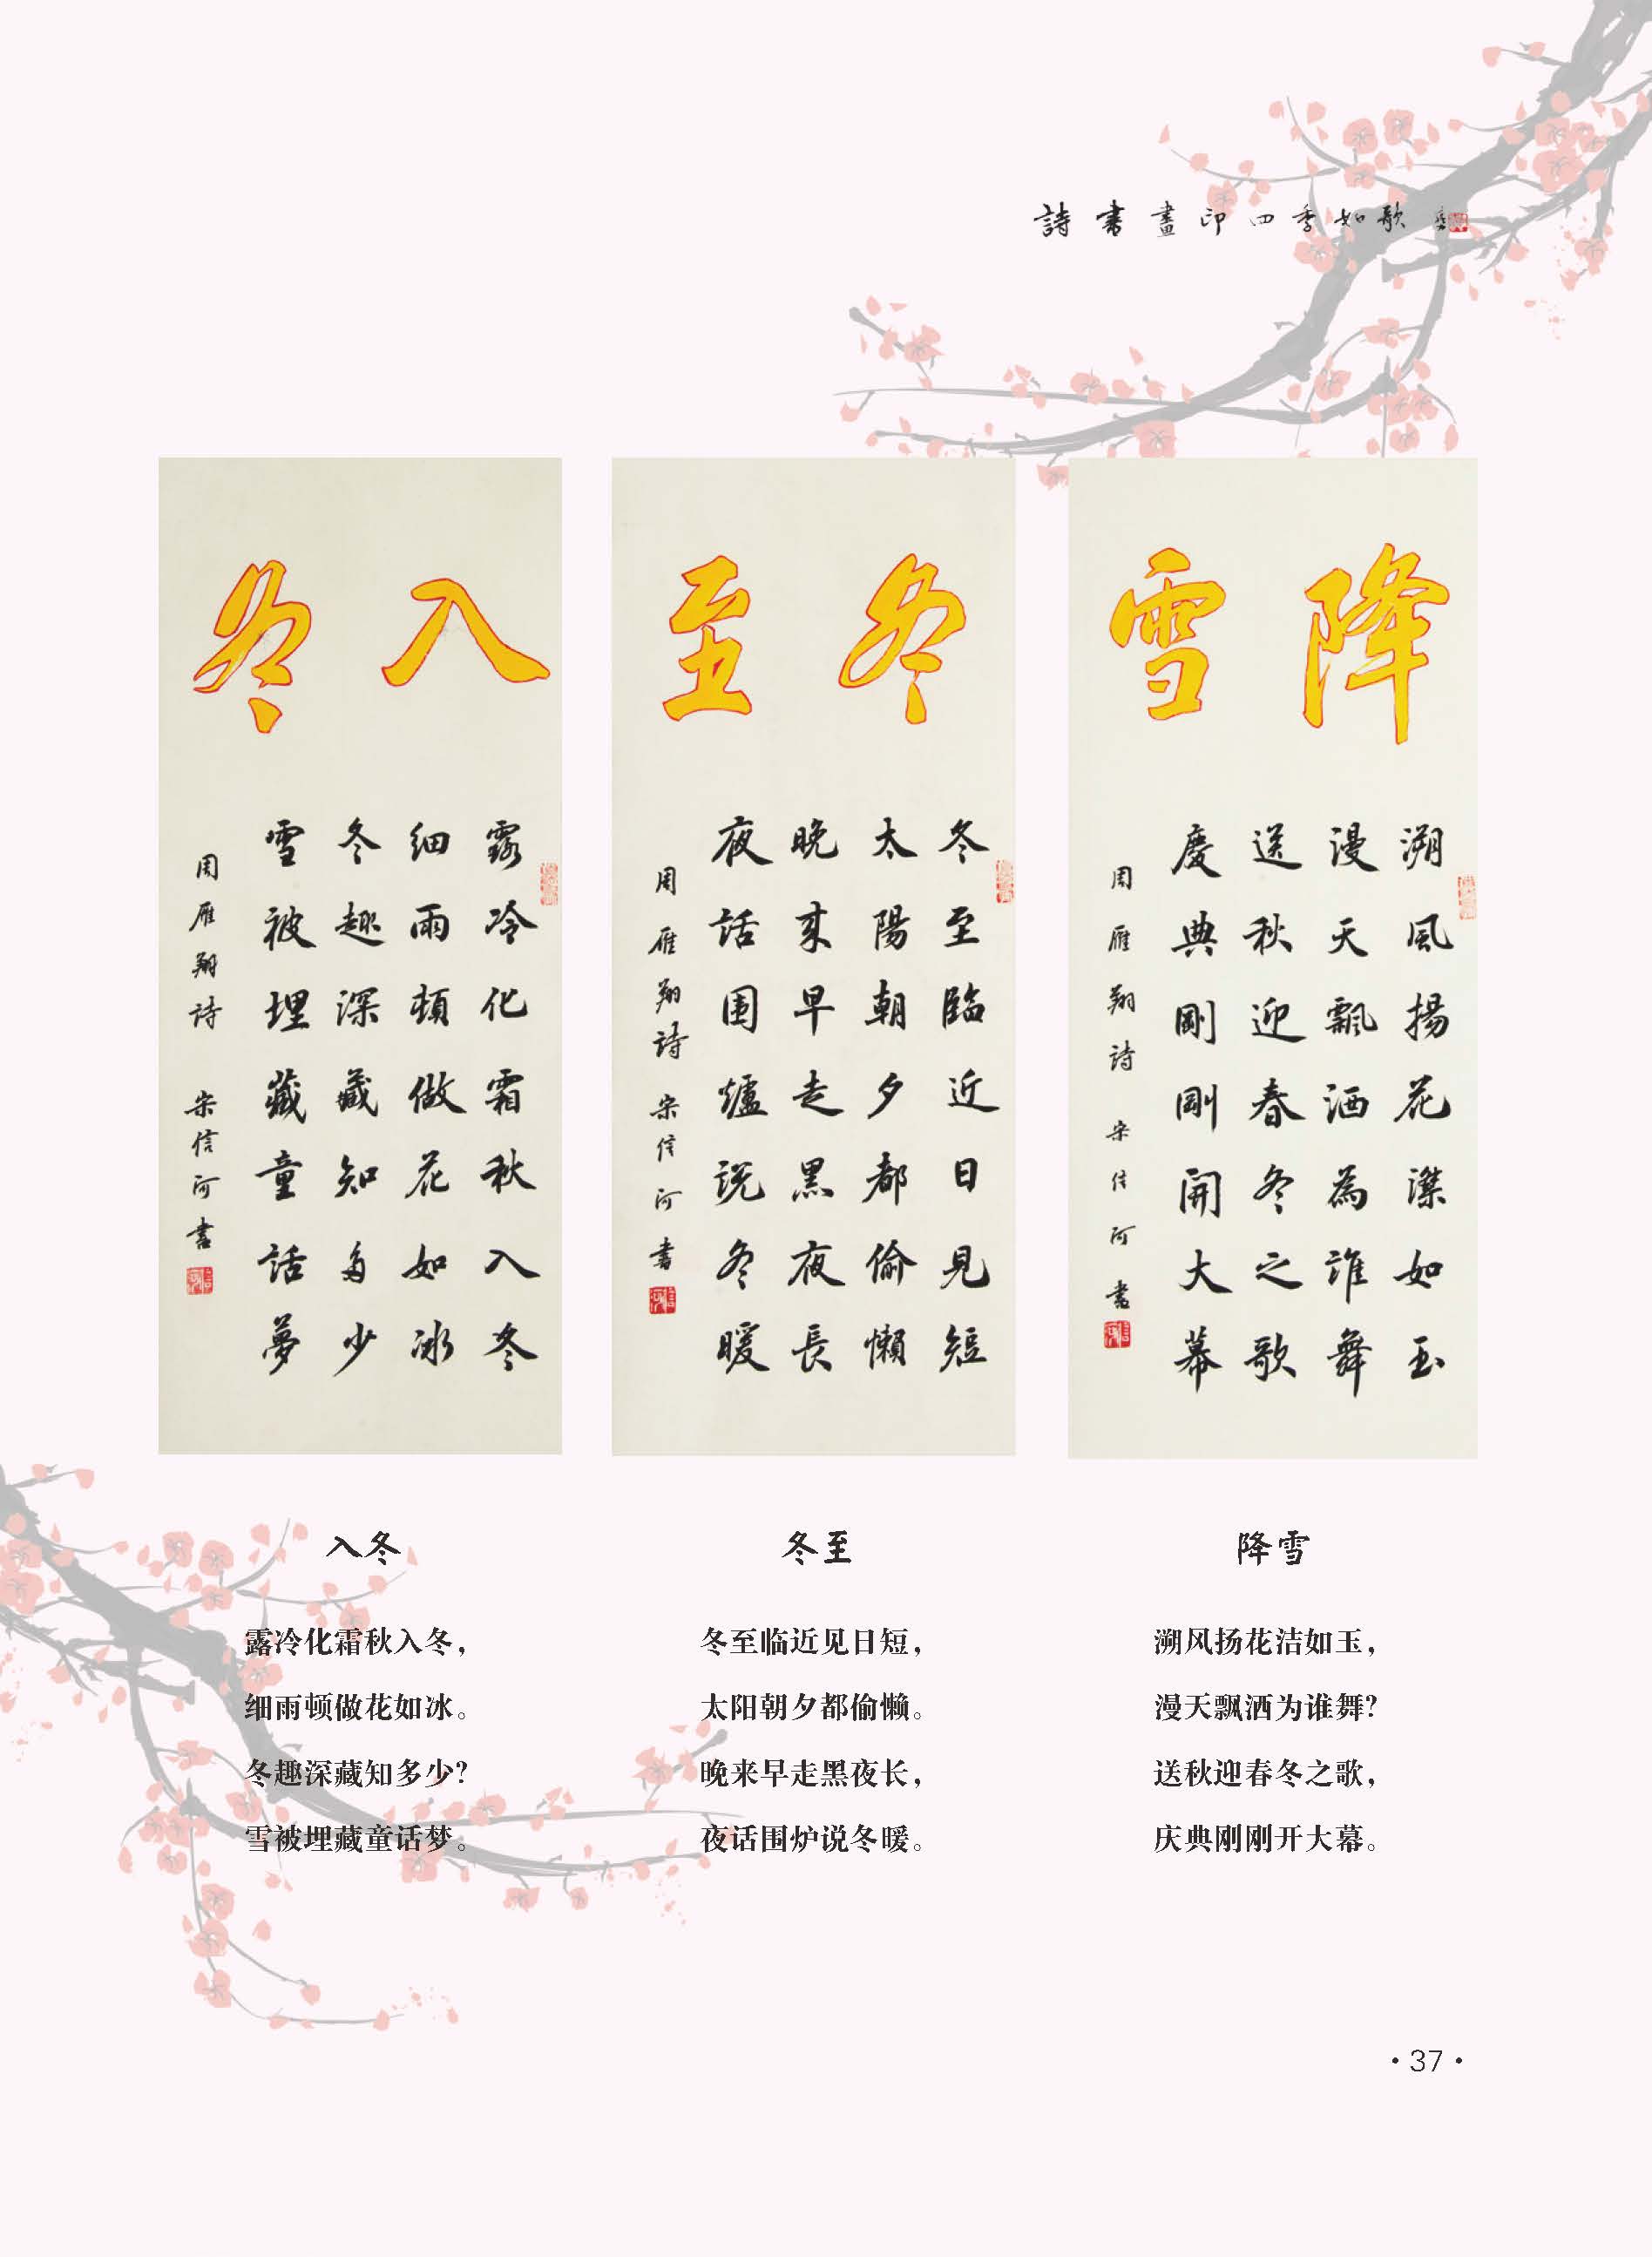 詩書畫印四季如歌
入冬
露冷化霜秋入冬
細雨頓做花如冰
冬趣深藏知多少
雪被埋藏童話夢
周雁翔詩 宋信河書
冬至
冬至臨近日見短
太陽朝夕都偷懶
晚來早走黑夜長
夜話围爐説冬暖
周雁翔詩 宋信河書
降雪
溯風揚花潔如玉
漫天飄洒為誰舞
送秋迎春冬之歌
慶典剛剛開大幕
周雁翔詩 宋信河書
入冬
露冷化霜秋入冬，
细雨顿做花如冰。
冬趣深藏知多少？
雪被埋藏童话梦。
冬至
冬至临近见日短，
太阳朝夕都偷懒。
晚来早走黑夜长，
夜话围炉说冬暖。
降雪
溯风扬花洁如玉，
漫天飘洒为谁舞？
送秋迎春冬之歌，
庆典刚刚开大幕。
·37·